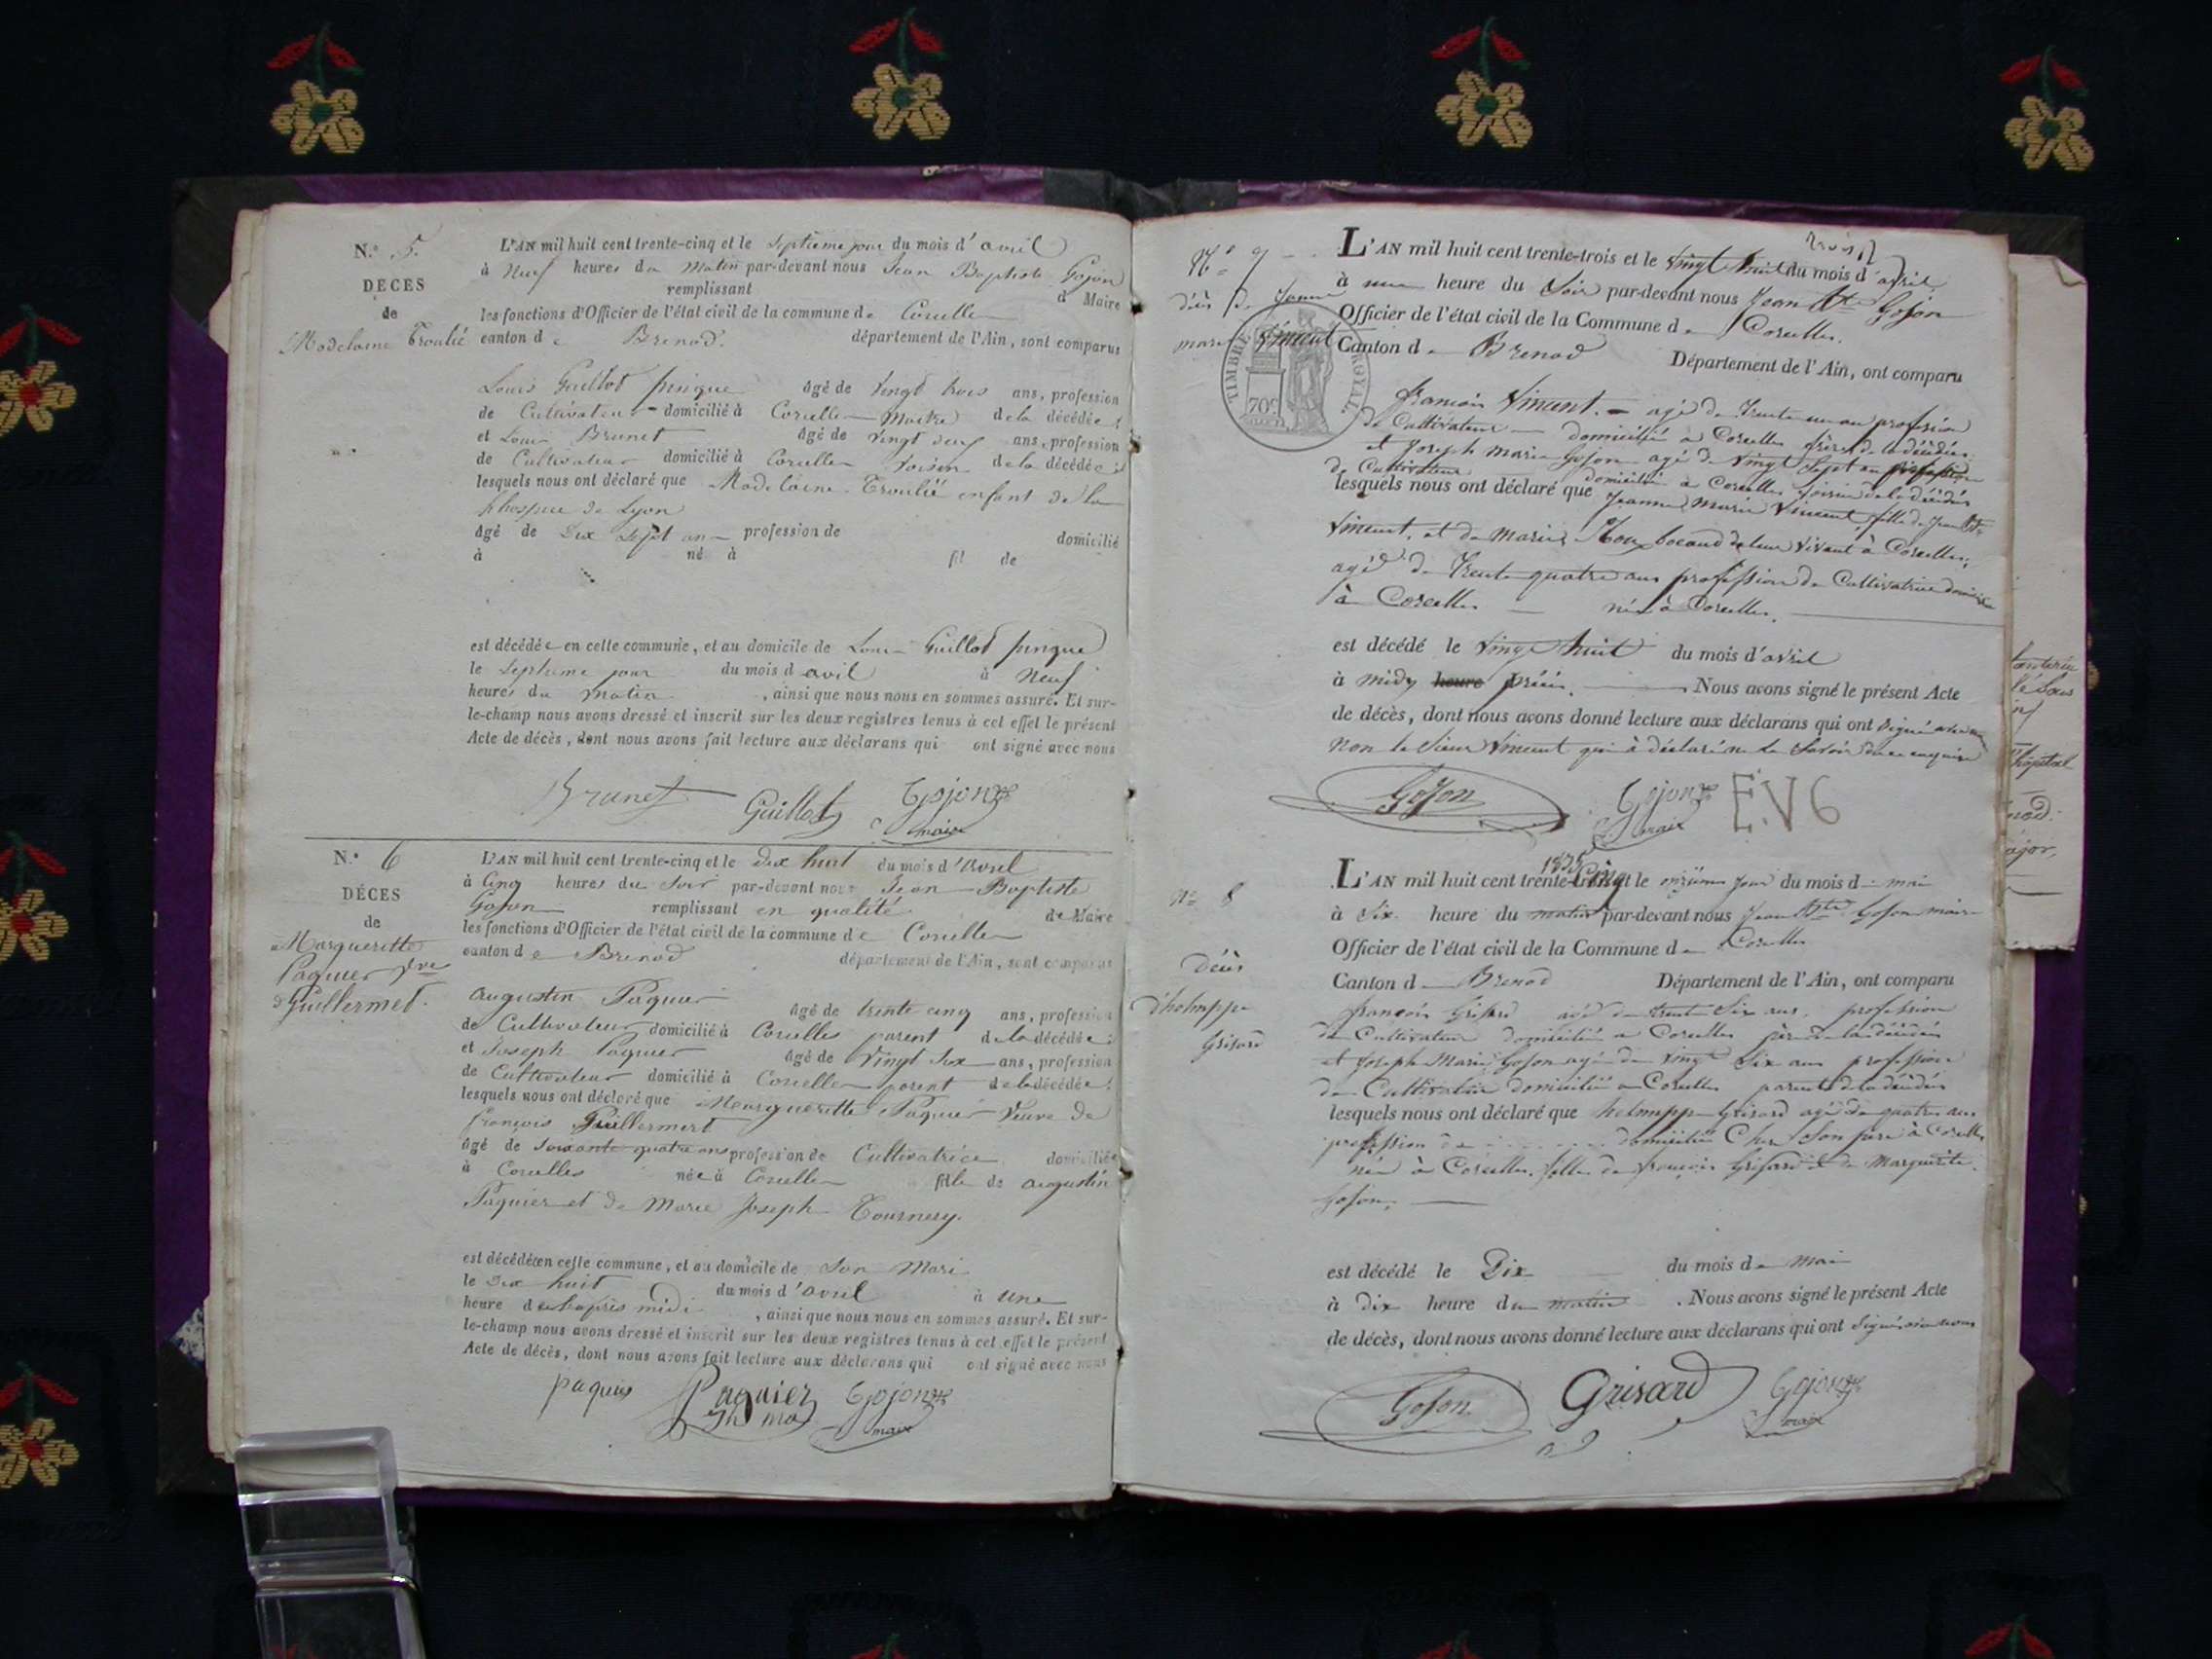 N.° 5.
DECES
de
Madelaine Troulié
L'AN mil huit cent trente-cinq et le septieme jour du mois d'avril
à Neuf heures du Matin par-devant nous Jean Baptiste Gojon
remplissant d Maire
les fonctions d'Officier de l'état civil de la commune de Corcelle
canton de Brenod. département de l'Ain, sont comparus
Louis Guillot âgé de vingt trois ans, profession
de Cultivateur domicilié à Corcelle Maitre de la décédée;
et Louis Brunet âgé de vingt neuf ans, profession
de Cultivateur domicilié à Corcelle voisin de la décédée;
lesquels nous ont déclaré que Madelaine Troulié enfant de la
hospice de Lyon
âgé de Dix Sept an profession de domicilié
à né à fil de
est décédée en cette commune, et au domicile de Louis Guillot
le septieme jour du mois d avril à Neuf
heures du matin, ainsi que nous nous en sommes assuré. Et sur-
le-champ nous avons dressé et inscrit sur les deux registres tenus à cet effet le présent
Acte de décès, dont nous avons fait lecture aux déclarans qui ont signé avec nous
Brunet Guillot Gojon
maire
N.° 6
DÉCES
de
Margueritte
Paquier Vve
Guillermet.
L'AN mil huit cent trente-cinq et le dix huit du mois d'avril
à Cinq heures du Soir par-devant nous Jean Baptiste
Gojon remplissant en qualité de Maire
les fonctions d'Officier de l'état civil de la commune de Corcelle
canton de Brenod département de l'Ain, sont comparus
Augustin Paquier âgé de trente cinq ans, profession
de Cultivateur domicilié à Corcelles parent de la décédée;
et Joseph Paquier âgé de Vingt Six ans, profession
de Cultivateur domicilié à Corcelle parent de la décédée;
lesquels nous ont déclaré que Margueritte Paquier Veuve de
françois Guillermert
âgé de Soixante quatre ans profession de Cultivatrice domiciliée
à Corcelles née à Corcelle fille de augustin
Paquier et de Marie Joseph Tournery.
est décédée en cette commune, et au domicile de Son Mari
le Dix huit du mois d'avril à une
heure de haprès midi, ainsi que nous nous en sommes assuré. Et sur-
le-champ nous avons dressé et inscrit sur les deux registres tenus à cet effet le présent
Acte de décès, dont nous avons fait lecture aux déclarans qui ont signé avec nous
paquier Paquier Gojon
maire
N° 7
décès de Jeanne
marie Vincent
TIMBRE ROYAL
70c
trois
L'AN mil huit cent trente-trois et le vingt huit du mois d'avril
à une heure du Soir par-devant nous Jean Bte Gojon
Officier de l'état civil de la Commune de Corcelles.
Canton de Brenod Département de l'Ain, ont comparu
françois Vincent. agé de Trente un an profession
de Cultivateur domicilié a Corcelles frère de la décédée
et Joseph Marie Gojon agé de vingt Sept an profession
de Cultivateur domicilié a Corcelles voisin de la décédée
lesquels nous ont déclaré que Jeanne Marie Vincent fille de Jean Bte
Vincent, et de Marie Roux bocaud de leur vivant à Corcelles,
agé de Trente quatre ans profession de Cultivatrice domiciliée
à Corcelles née à Corcelles.
est décédé le Vingt huit du mois d'avril
à midy heure précis. Nous avons signé le présent Acte
de décès, dont nous avons donné lecture aux déclarans qui ont signé avec nous
Non le Sieur Vincent qui à déclaré ne le Savoir de ce enquis
Gojon Gojon E.V6
maire
N° 8
décès
d'holimppe
Grisard
1835
L'AN mil huit cent trente-Cinq et le onzième jour du mois de mai
à Six heure du matin par-devant nous Jean Bte Gojon maire
Officier de l'état civil de la Commune de Corcelles
Canton de Brenod Département de l'Ain, ont comparu
françois Grisard agé de trente Six ans, profession
de Cultivateur domicilié a Corcelles père de la décédée
et Joseph Marie Gojon agé de vingt Six ans profession
de Cultivateur domicilié a Corcelles parent de la décédée
lesquels nous ont déclaré que holimppe Grisard agé de quatre ans
profession de domiciliée Chez Son père à Corcelles
née à Corcelles, fille de françois Grisard et de Marguerite
Gojon.
est décédé le Dix du mois de mai
à dix heure du matin. Nous avons signé le présent Acte
de décès, dont nous avons donné lecture aux déclarans qui ont Signé avec nous
Gojon Grisard Gojon
maire